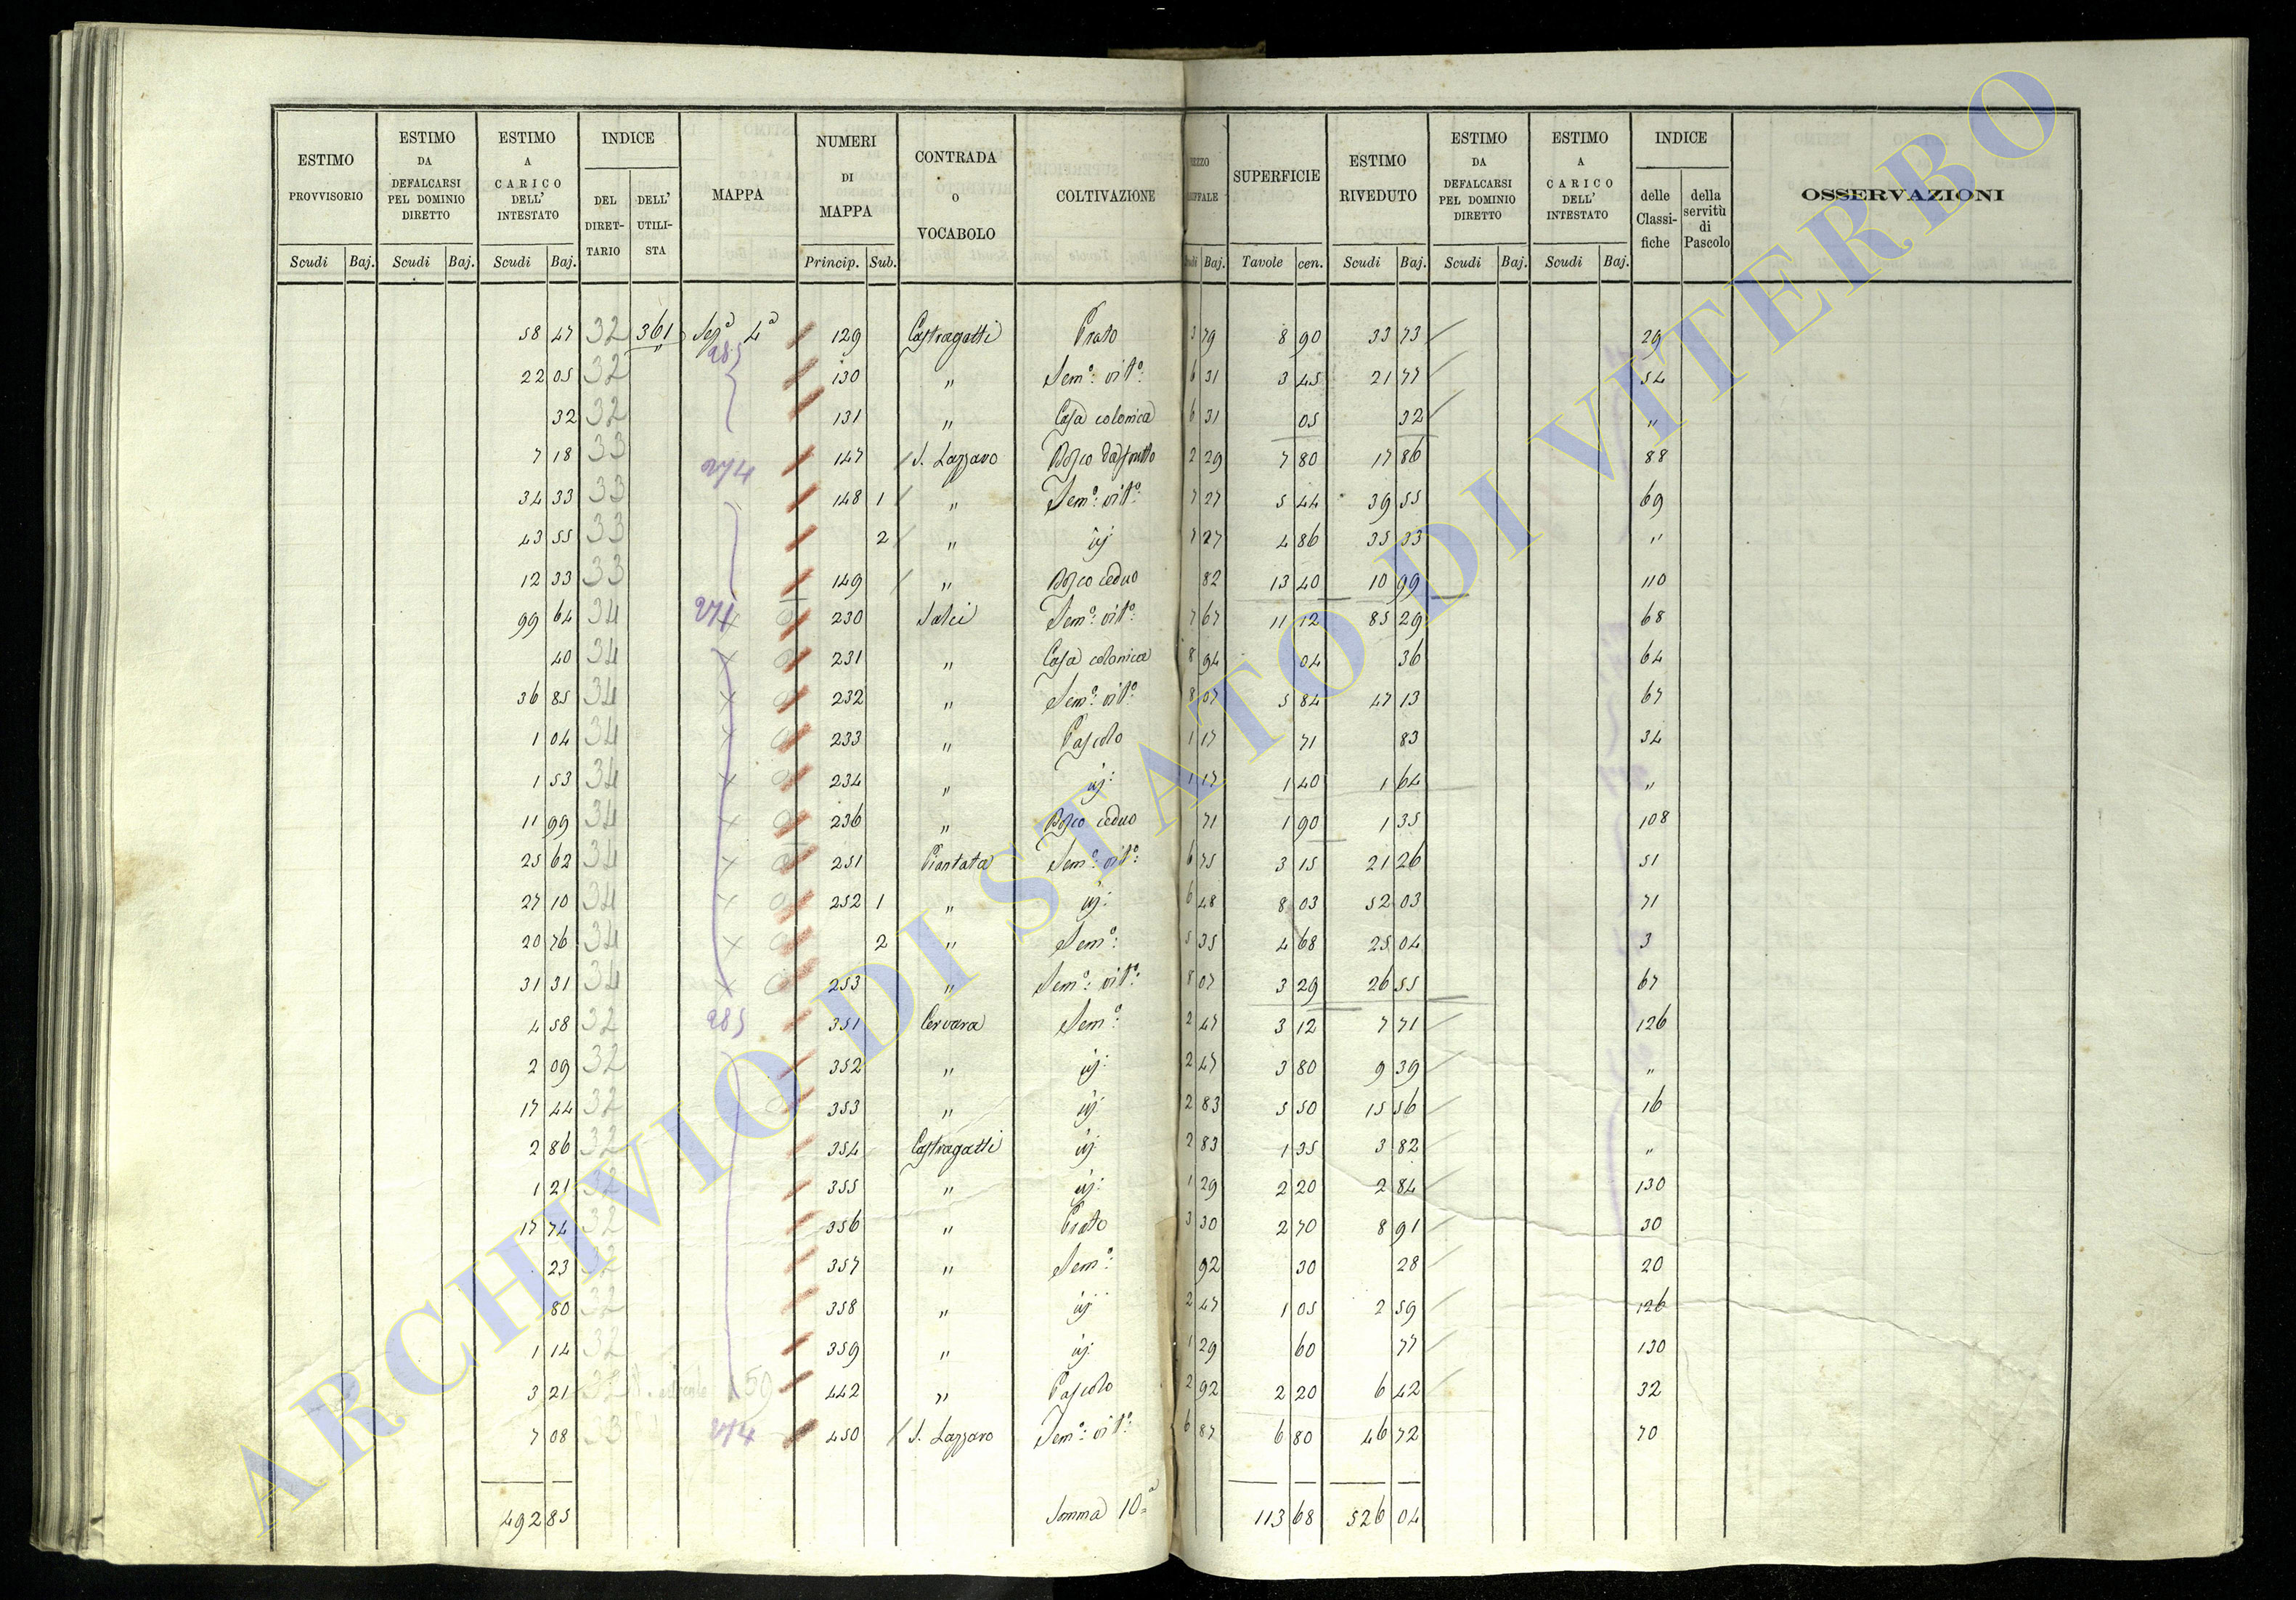 ESTIMO PROVVISORIO | ESTIMO DA DEFALCARSI PEL DOMINIO DIRETTO | ESTIMO A CARICO DELL' INTESTATO | INDICE | MAPPA | NUMERI DI MAPPA | CONTRADA O VOCABOLO | COLTIVAZIONE | SUPERFICIE | ESTIMO RIVEDUTO | ESTIMO DA DEFALCARSI PEL DOMINIO DIRETTO | ESTIMO A CARICO DELL' INTESTATO | INDICE | OSSERVAZIONI
DEL DIRET-TARIO | DELL' UTILI-STA | delle Classi-fiche | della servitù di Pascolo
Scudi | Baj. | Scudi | Baj. | Scudi | Baj. | Princip. | Sub. | Baj. | Tavole | cen. | Scudi | Baj. | Scudi | Baj. | Scudi | Baj.
58 47 32 361 Sez.ª 4ª 129 Castragatti Prato 3 79 8 90 33 73 29
285
22 05 32 130 " Sem.o: vit.o: 6 31 3 45 21 77 54
32 32 131 " Casa colonica 6 31 05 32 "
7 18 33 274 147 S. Lazzaro Bosco da frutto 2 29 7 80 17 86 88
34 33 33 148 1 " Sem.o: vit.o: 7 27 5 44 39 55 69
43 55 33 2 " id: 7 27 4 86 35 33 "
12 33 33 149 " Bosco ceduo 82 13 40 10 99 110
99 64 34 271 230 Salci Sem.o: vit.o: 7 67 11 12 85 29 68
40 34 231 " Casa colonica 8 94 04 36 64
36 85 34 232 " Sem.o: vit.o: 8 07 5 84 47 13 67
1 04 34 233 " Pascolo 1 17 71 83 34
1 53 34 234 " id: 1 17 1 40 1 64 "
11 99 34 236 " Bosco ceduo 71 1 90 1 35 108
25 62 34 251 Piantata Sem.o: vit.o: 6 75 3 15 21 26 51
27 10 34 252 1 " id: 6 48 8 03 52 03 71
20 76 34 2 " Sem.o: 5 35 4 68 25 04 3
31 31 34 253 " Sem.o: vit.o: 8 07 3 29 26 55 67
4 58 32 285 351 Cervara Sem.o 2 47 3 12 7 71 126
2 09 32 352 " id: 2 47 3 80 9 39 "
17 44 32 353 " id: 2 83 5 50 15 56 16
2 86 32 354 Castragatti id: 2 83 1 35 3 82 "
1 21 32 355 " id: 1 29 2 20 2 84 130
17 74 32 356 " Prato 3 30 2 70 8 91 30
23 32 357 " Sem.o: 92 30 28 20
80 32 358 " id: 2 47 1 05 2 59 126
1 14 32 359 " id: 1 29 60 77 130
3 21 32 50 442 " Pascolo 2 92 2 20 6 42 32
7 08 33 274 450 S. Lazzaro Sem.o: vit.o: 6 87 6 80 46 72 70
492 85 Somma 10ª 113 68 526 04
ARCHIVIO DI STATO DI VITERBO